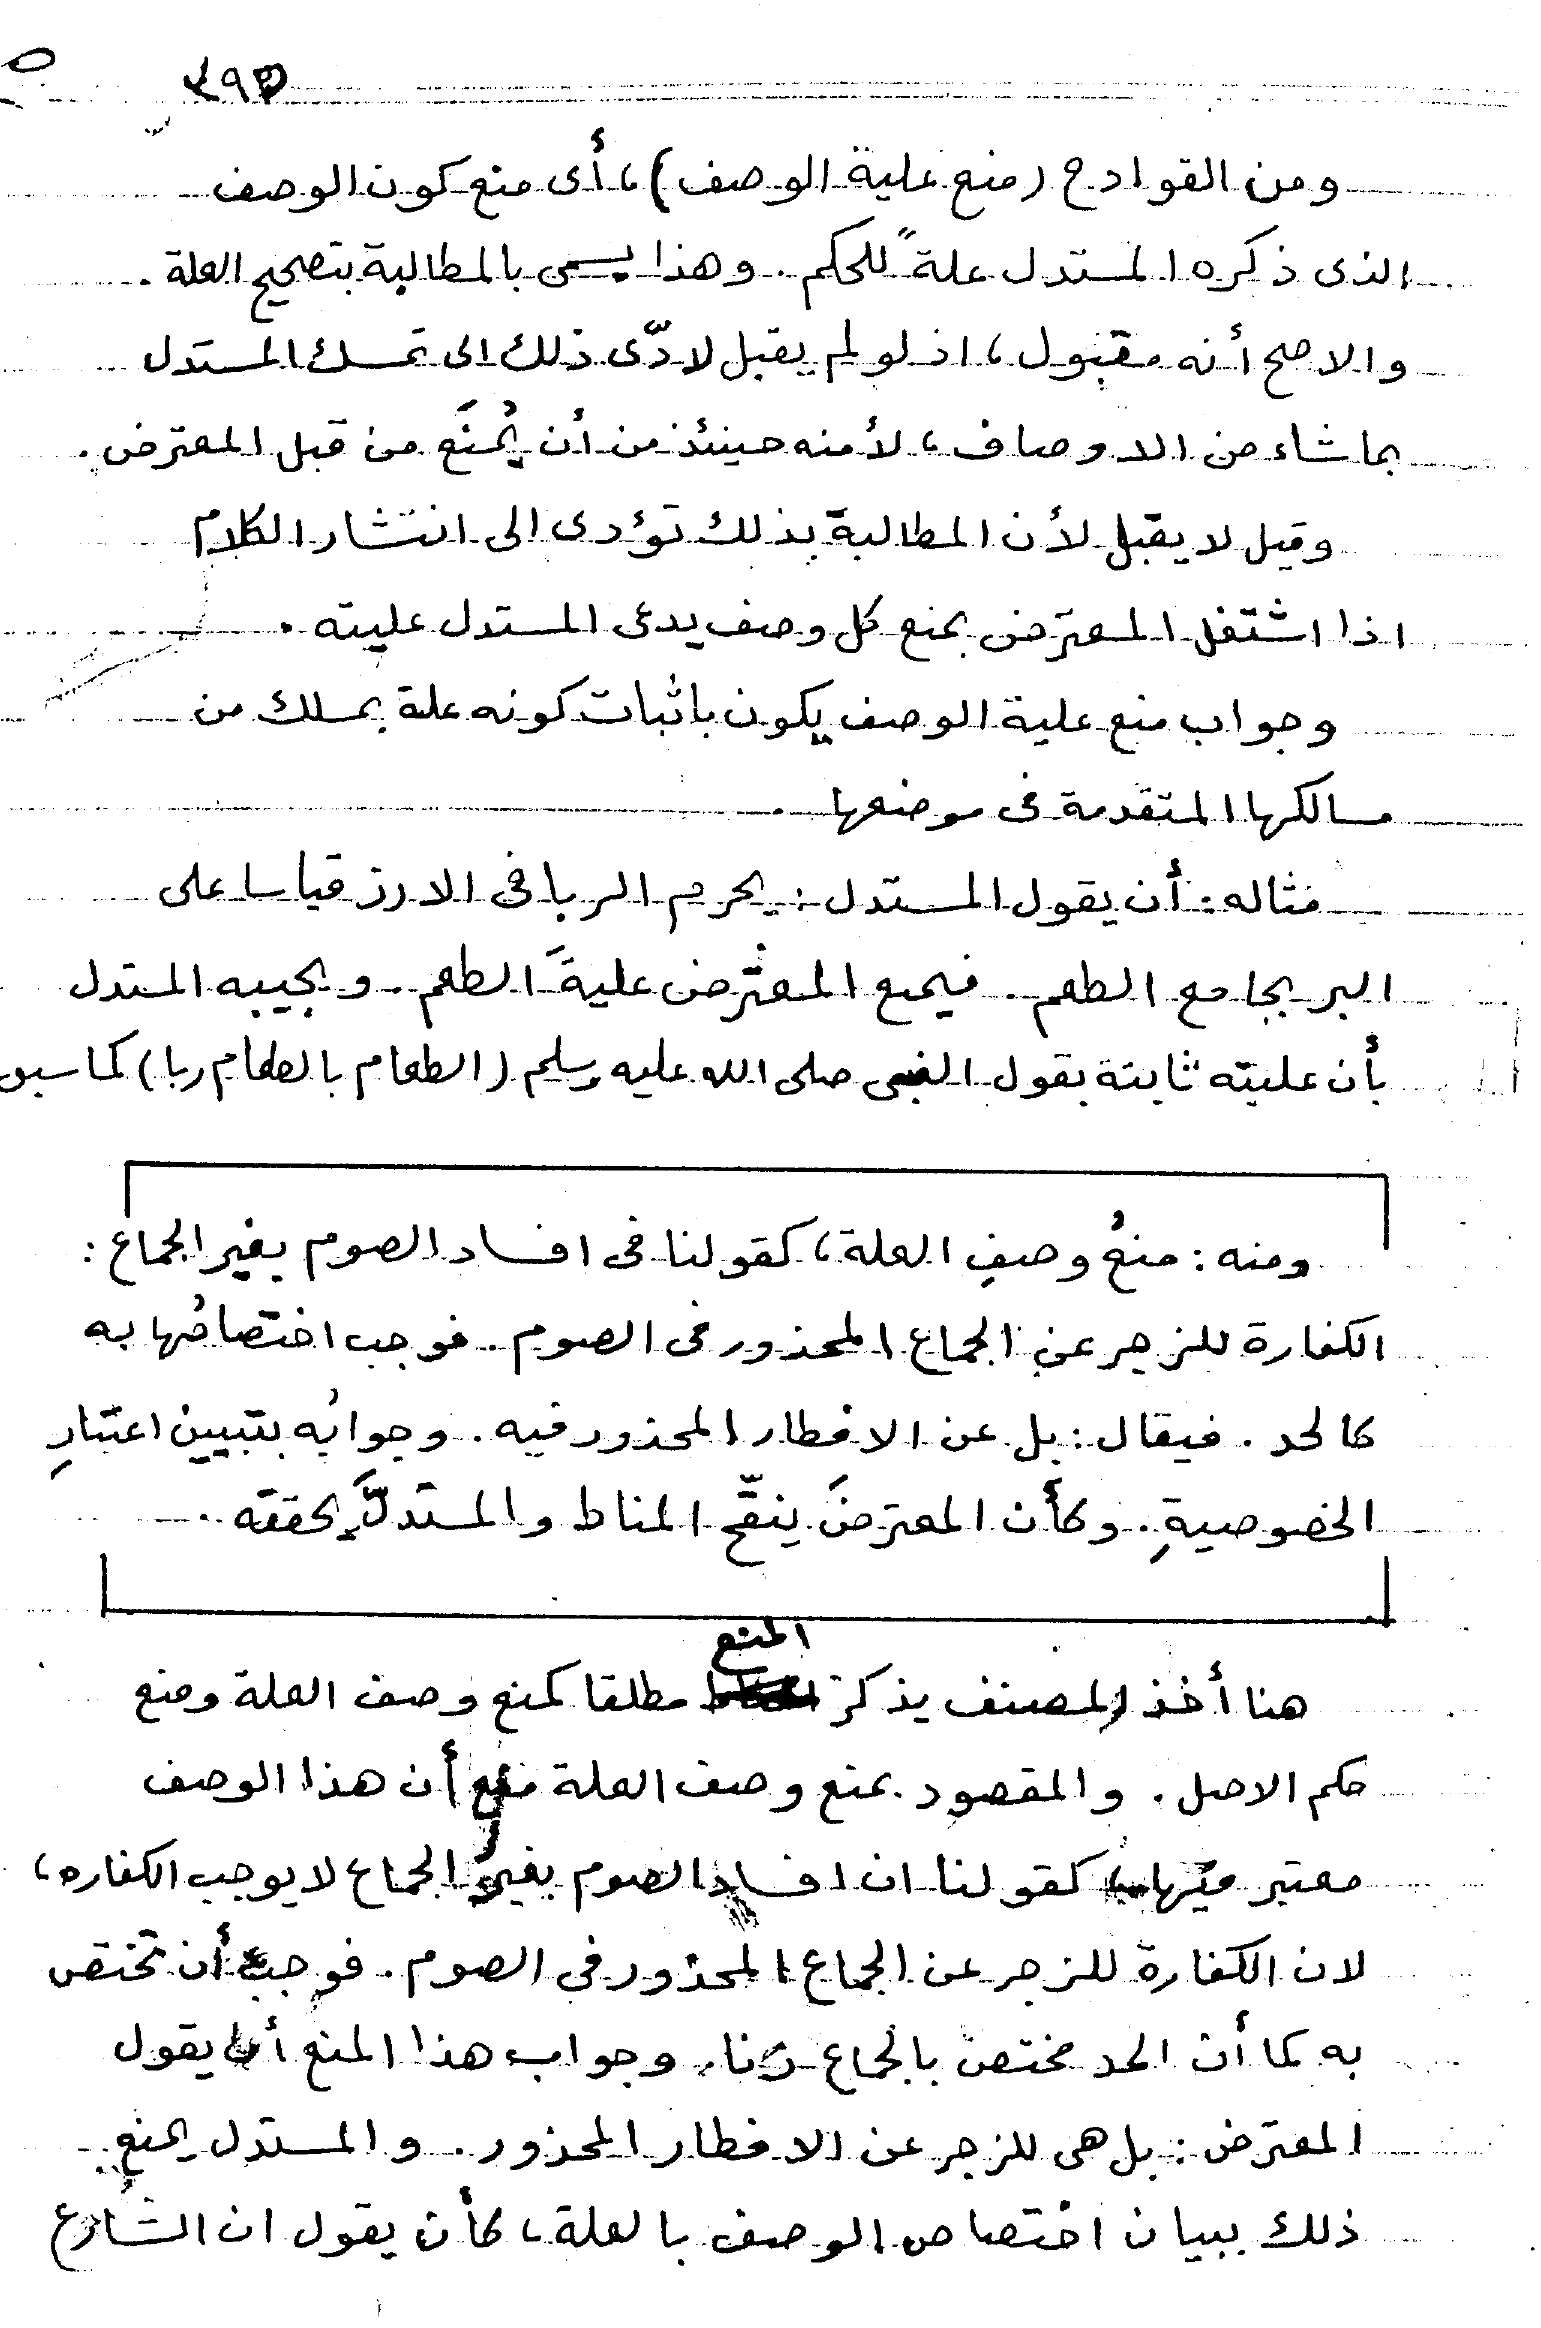 ومن القوادح (منع علية الوصف)، أى منع كون الوصف
الذى ذكره المستدل علةً للحكم. وهذا يسمى بالمطالبة بتصحيح العلة.
والاصح أنه مقبول، اذ لو لم يقبل لادّى ذلك الى تمسك المستدل
بما شاء من الاوصاف، لأمنه حينئذ من أن يُمنَع من قبل المعترض.
وقيل لا يقبل لأن المطالبة بذلك تؤدى الى انتشار الكلام
اذا اشتغل المعترض بمنع كل وصف يدعى المستدل عليته.
وجواب منع علية الوصف يكون باثبات كونه علة بمسلك من
مسالكها المتقدمة فى موضعها.
مثاله: أن يقول المستدل: يحرم الربا فى الارز قياسا على
البر بجامع الطعم. فيمنع المعترض عليةَ الطعم. ويجيبه المستدل
بأن عليته ثابتة بقول النبى صلى الله عليه وسلم (الطعام بالطعام ربا) كما سبق
ومنه: منعُ وصفِ العلة، كقولنا فى افساد الصوم بغير الجماع:
الكفارة للزجر عن الجماع المحذور فى الصوم. فوجب اختصاصُها به
كالحد. فيقال: بل عن الافطار المحذور فيه. وجوابُه بتبيين اعتبارِ
الخصوصيةِ. وكأن المعترضَ ينقّح المناط والمستدلَّ يحققه.
هنا أخذ المصنف يذكر المنع مطلقا كمنع وصف العلة ومنع
حكم الاصل. والمقصود بمنع وصف العلة منع أن هذا الوصف
معتبر فيها، كقولنا ان افساد الصوم بغير الجماع لا يوجب الكفاره،
لان الكفارة للزجر عن الجماع المحذور فى الصوم. فوجب أن تختص
به كما أن الحد مختص بالجماع زنا. وجواب هذا المنع أن يقول
المعترض: بل هى للزجر عن الافطار المحذور. والمستدل يمنع
ذلك ببيان اختصاص الوصف بالعلة، كأن يقول ان الشارع